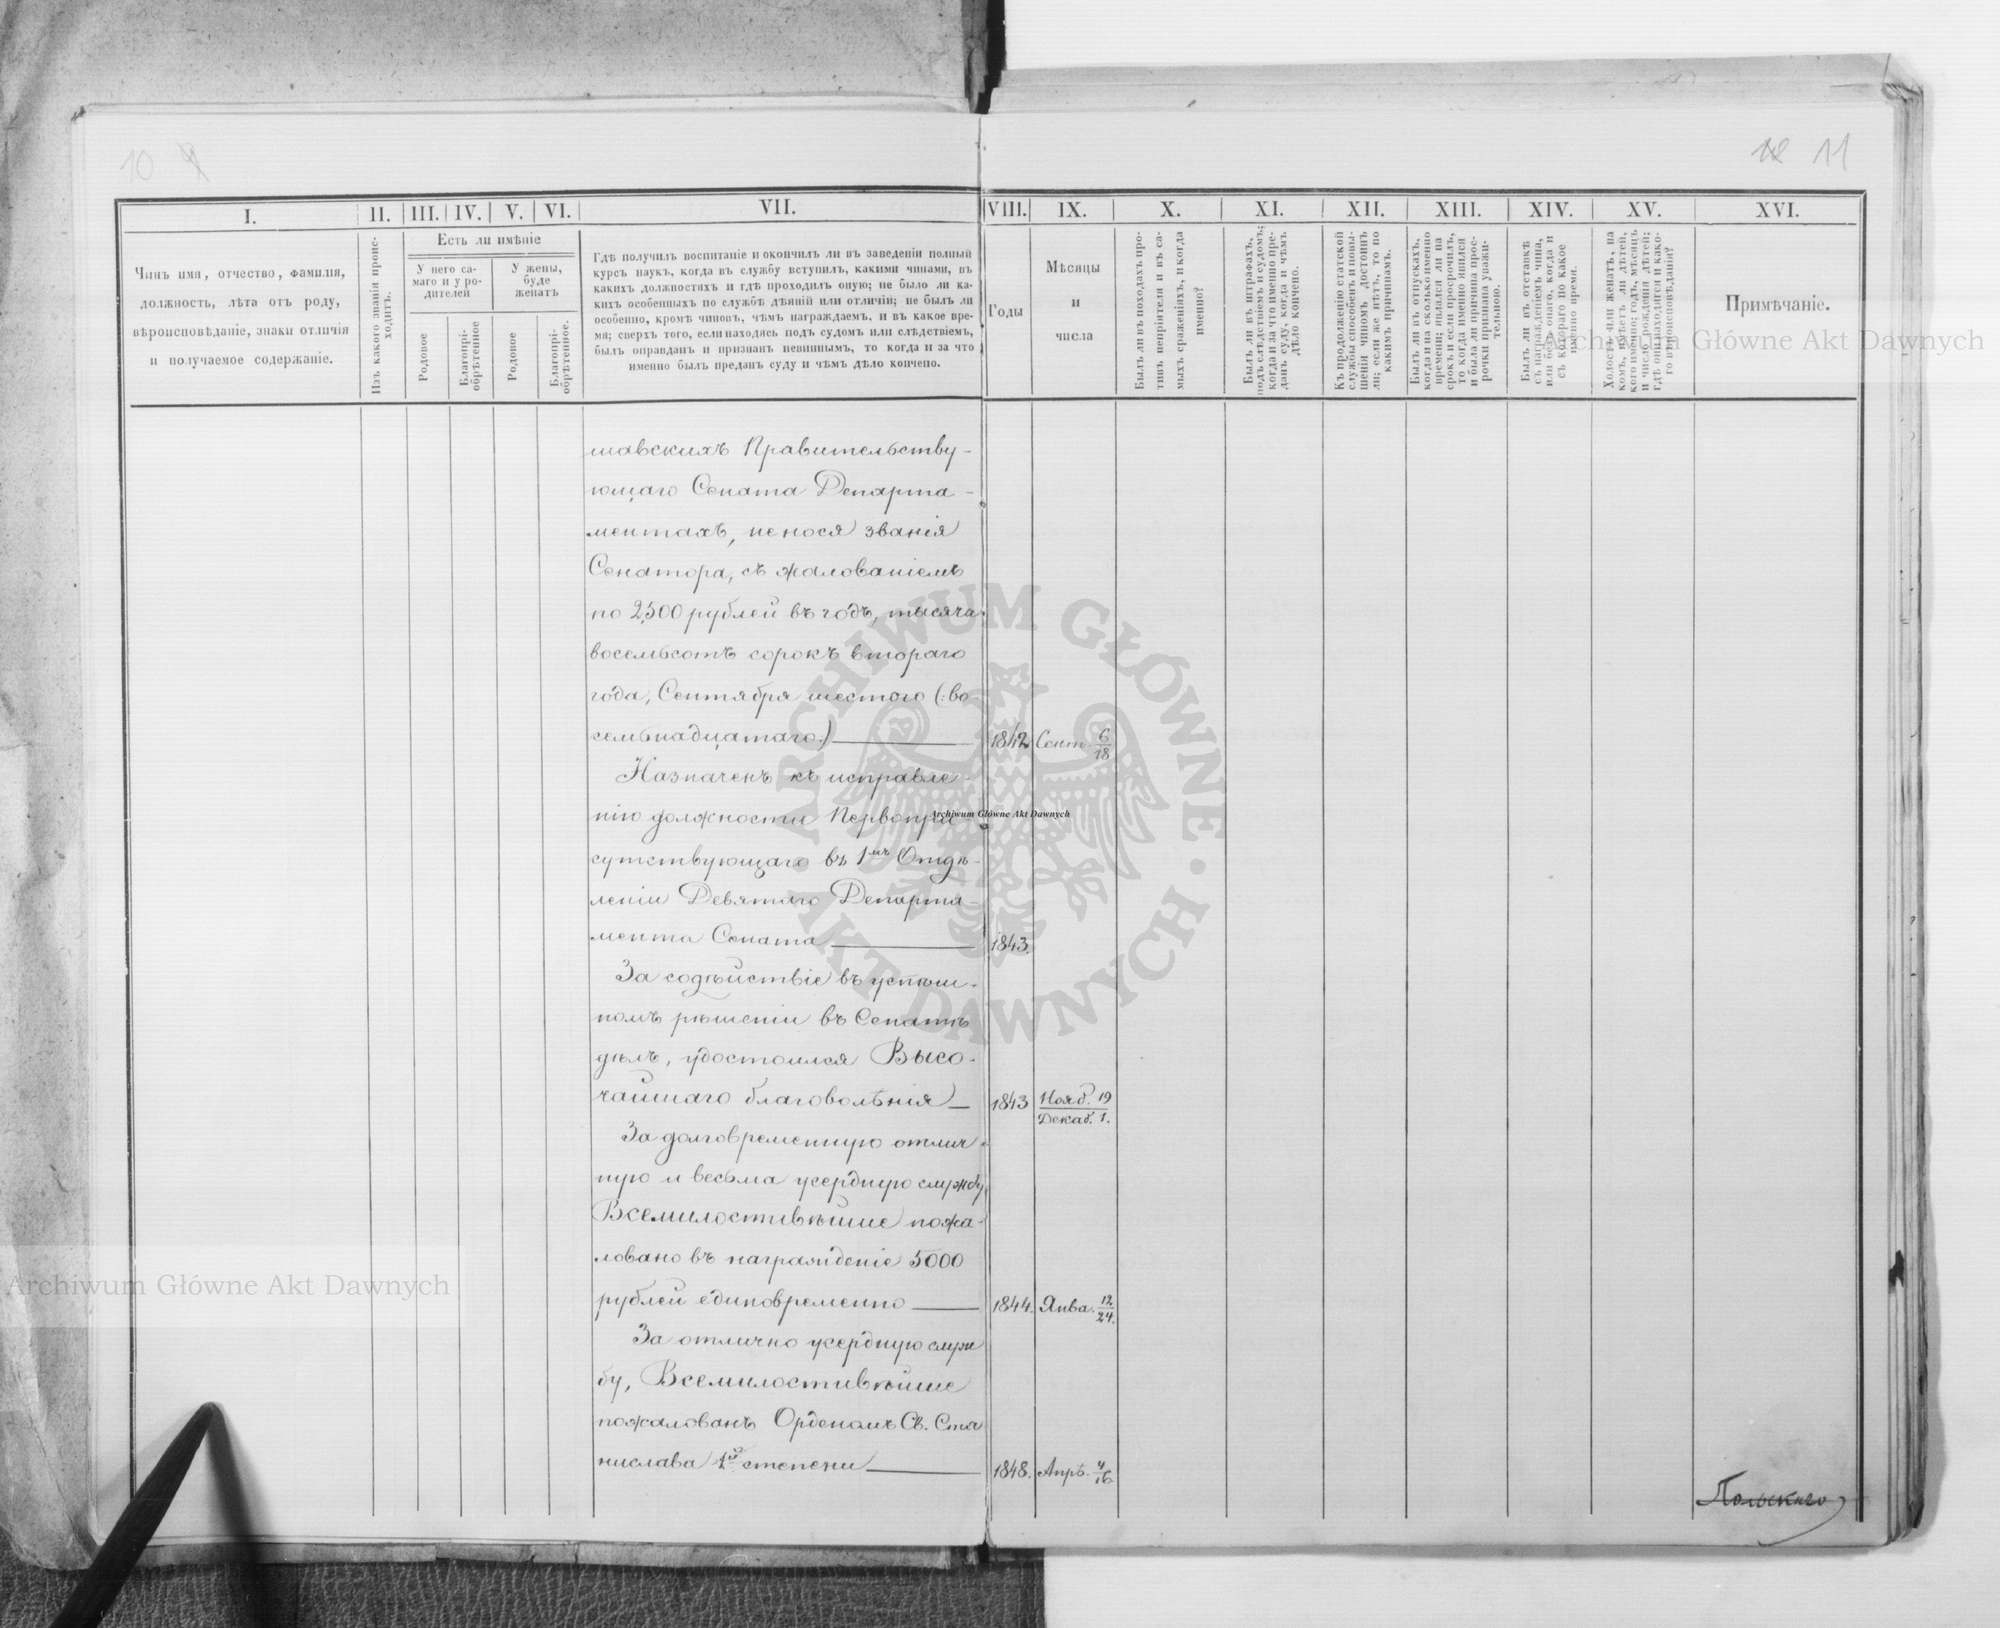 10 9
10 11
I.
II.
III.
IV.
V.
VI.
VII.
VIII.
IX.
X.
XI.
XII.
XIII.
XIV.
XV.
XVI.
Чинъ имя, отчество, фамилія,
должность, лѣта отъ роду,
вѣроисповѣданіе, знаки отличія
и получаемое содержаніе.
Изъ какого званія проис-
ходитъ.
Есть ли имѣніе
У него са-
маго и у ро-
дителей
У жены,
буде
женатъ
Родовое
Благопрі-
обрѣтенное
Родовое
Благопрі-
обрѣтенное.
Гдѣ получилъ воспитаніе и окончилъ ли въ заведеніи полный
курсъ наукъ, когда въ службу вступилъ, какими чинами, въ
какихъ должностяхъ и гдѣ проходилъ оную; не было ли ка-
кихъ особенныхъ по службѣ дѣяній или отличій; не былъ ли
особенно, кромѣ чиновъ, чѣмъ награждаемъ, и въ какое вре-
мя; сверхъ того, если находясь подъ судомъ или слѣдствіемъ,
былъ оправданъ и признанъ невиннымъ, то когда и за что
именно былъ преданъ суду и чѣмъ дѣло кончено.
Годы
Мѣсяцы
и
числа
Былъ ли въ походахъ про-
тивъ непріятеля и въ са-
мыхъ сраженіяхъ, и когда
именно?
Былъ ли въ штрафахъ,
подъ слѣдствіемъ и судомъ;
когда и за что именно пре-
данъ суду, когда и чѣмъ
дѣло кончено.
Къ продолженію статской
службы способенъ и повы-
шенія чиномъ достоинъ
ли; если же нѣтъ, то по
какимъ причинамъ.
Былъ ли въ отпускахъ,
когда и на сколько именно
времени; являлся ли на
срокъ и если просрочилъ,
то когда именно явился
и была ли причина прос-
рочки признана уважи-
тельною.
Былъ ли въ отставкѣ
съ награжденіемъ чина,
или безъ онаго, когда и
съ котораго по какое
именно время.
Холостъ или женатъ, на
комъ, имѣетъ ли дѣтей,
кого именно; годъ, мѣсяцъ
и число рожденія дѣтей;
гдѣ они находятся и како-
го вѣроисповѣданія?
Примѣчаніе.
шавскихъ Правительству-
ющаго Сената Департа-
ментахъ, не нося званія
Сенатора, съ жалованіемъ
по 2,500 рублей въ годъ, тысяча
восемьсотъ сорокъ втораго
года, Сентября шестого (:во-
семьнадцатаго:) 1842 Сент. 6/18
Назначенъ къ исправле-
нію должности Первопри-
сутствующаго въ 1мъ Отдѣ-
леніи Девятаго Департа-
мента Сената 1843.
За содѣйствіе въ успѣш-
номъ рѣшеніи въ Сенатѣ
дѣлъ, удостоился Высо-
чайшаго благоволѣнія 1843 Нояб. 19/Декаб. 1.
За долговременную отлич-
ную и весьма усердную службу
Всемилостивѣйше пожа-
ловано въ награжденіе 5000
рублей единовременно 1844. Янва. 12/24.
За отлично усердную служ
бу, Всемилостивѣйше
пожалованъ Орденомъ Св. Ста
нислава 1й степени 1848. Апрѣ. 4/16
Польскаго
ARCHIWUM GŁÓWNE · AKT DAWNYCH ·
Archiwum Główne Akt Dawnych
Archiwum Główne Akt Dawnych
Archiwum Główne Akt Dawnych